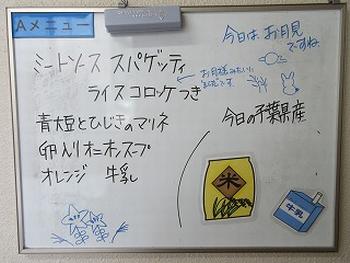 Aメニュー
今日は お月見
ですね。
ミートソース スパゲッティ
ライスコロッケつき
お月様みたいに
青大豆とひじきのマリネ
卵入りオニオンスープ
オレンジ 牛乳
今日の千葉県産
米
牛乳